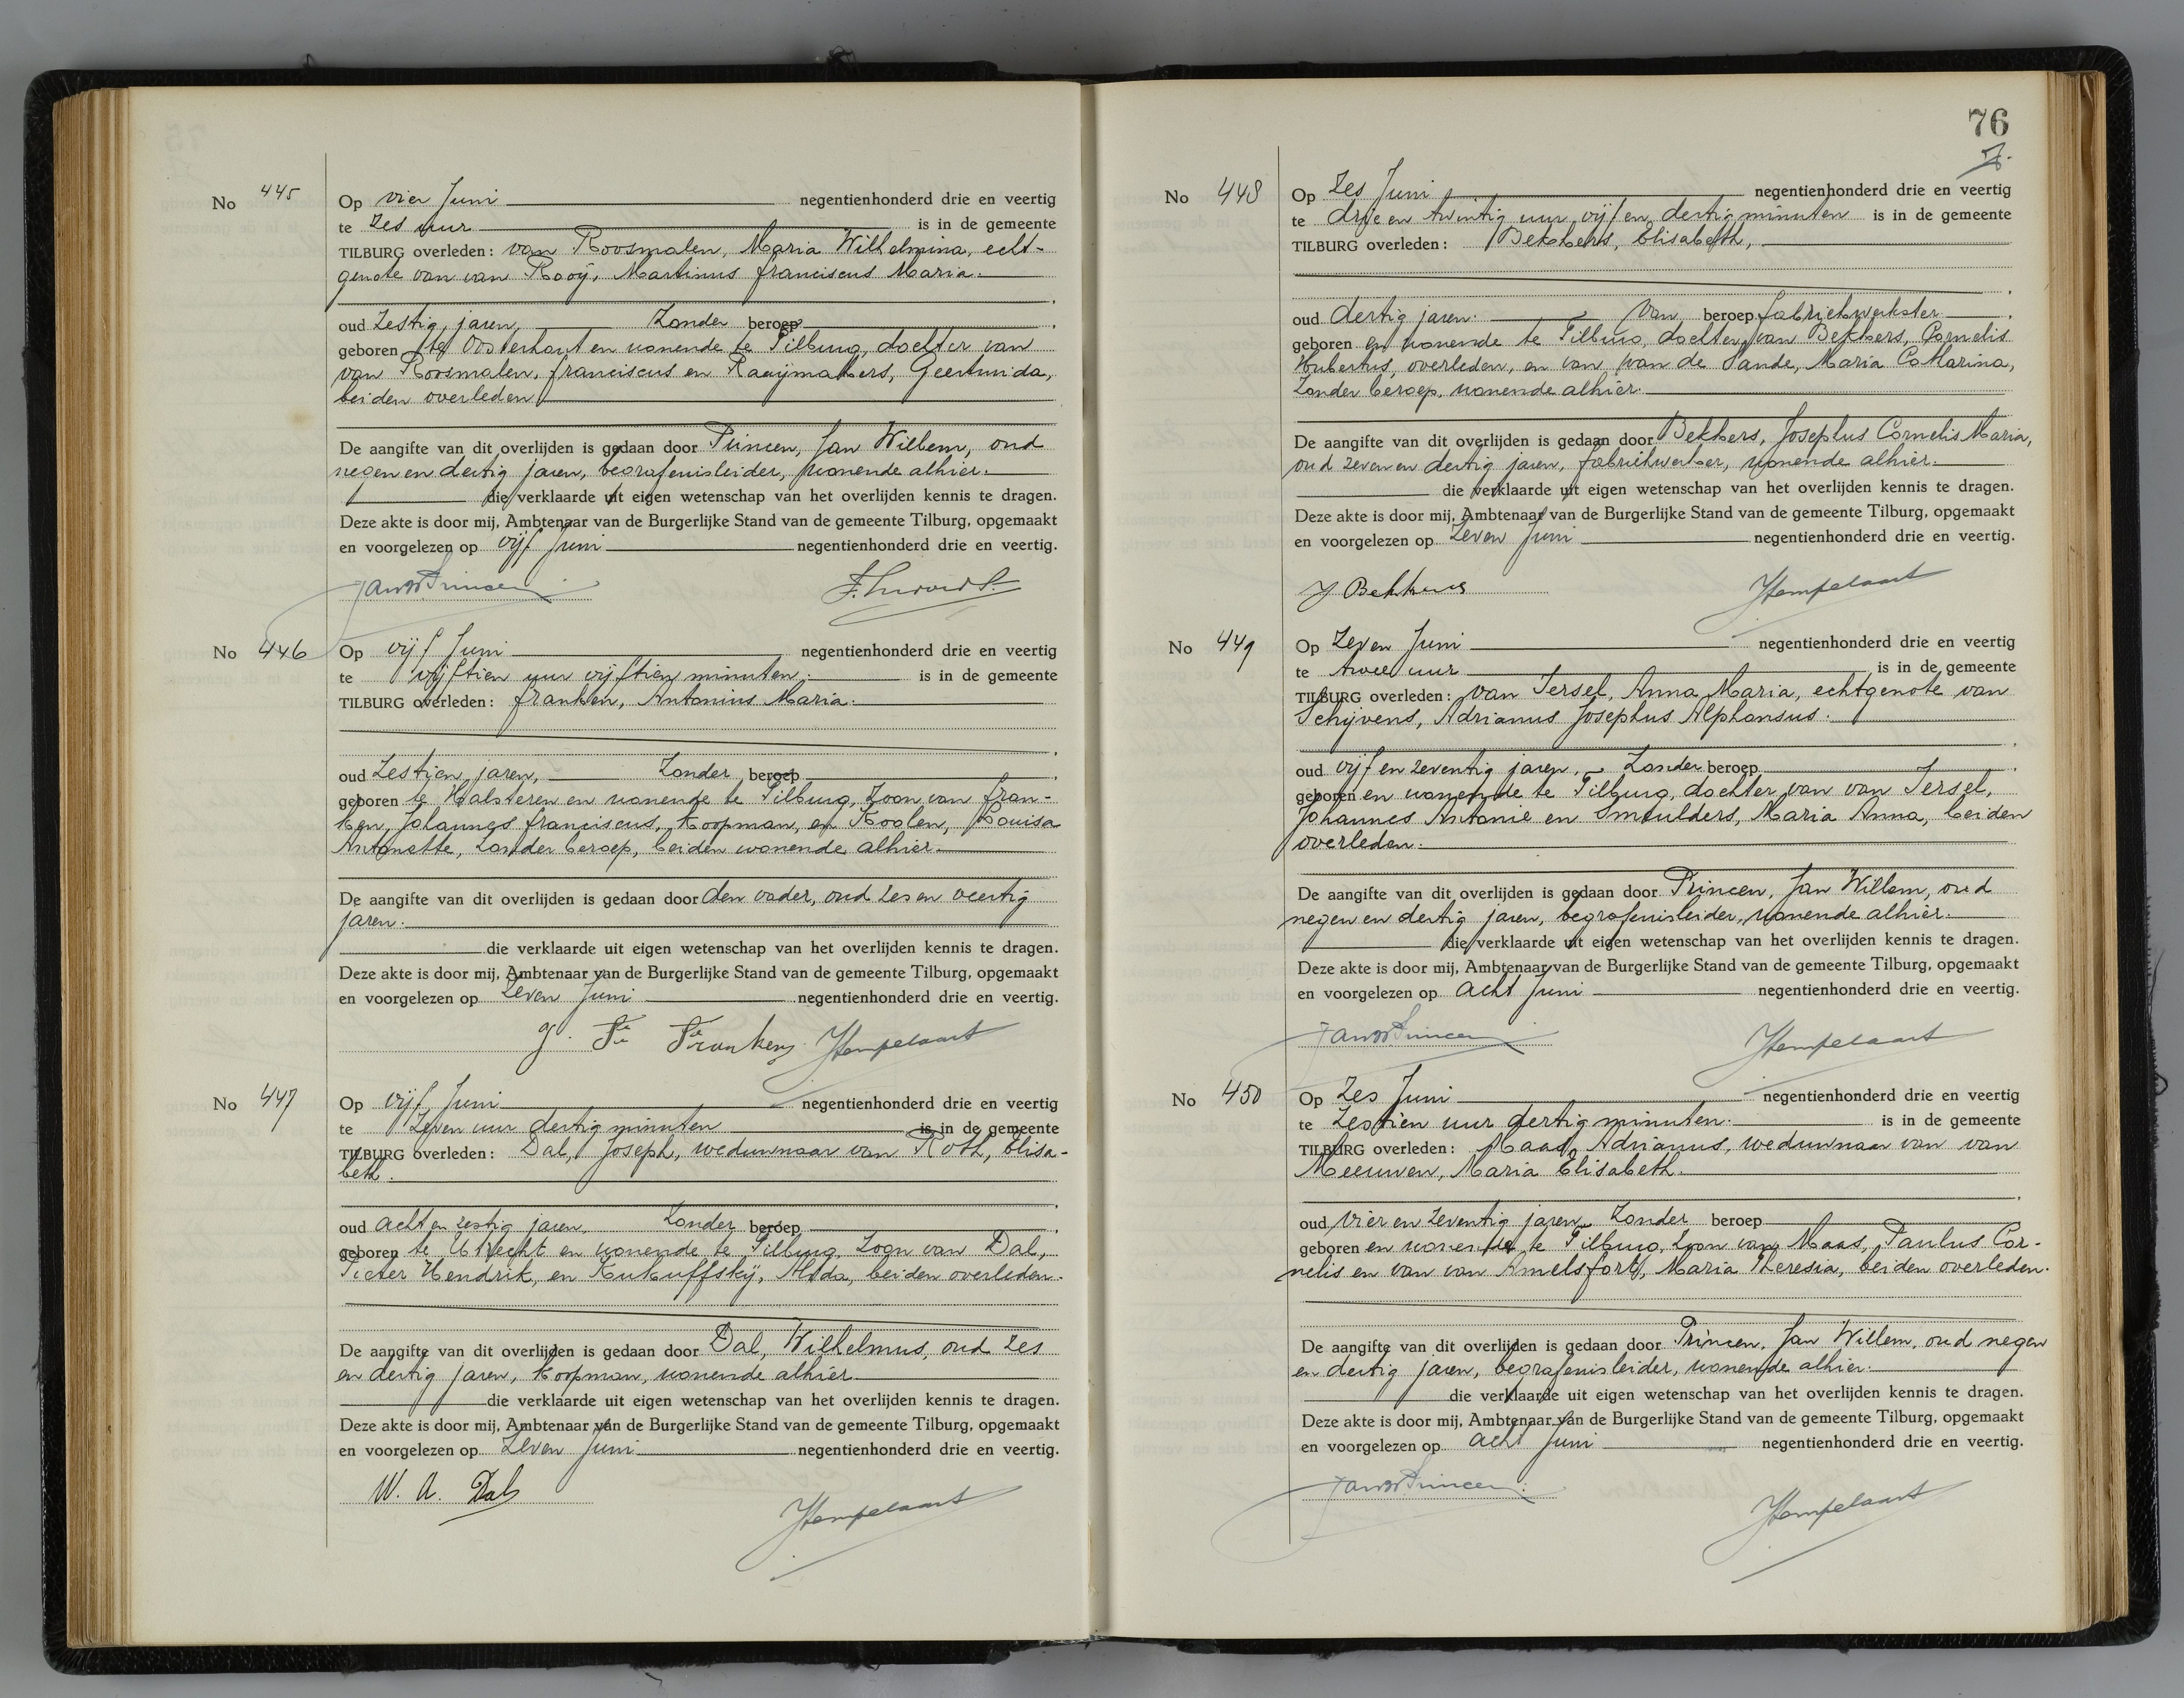 No 445
Op vier Juni negentienhonderd drie en veertig
te zes uur is in de gemeente
TILBURG overleden: van Roosmalen, Maria Wilhelmina, echt-
genote van van Rooij, Martinus Franciscus Maria.
oud zestig jaren, zonder beroep
geboren te Oosterhout en wonende te Tilburg, dochter van
van Roosmalen, Franciscus en Raaijmakers, Geertruida,
beiden overleden
De aangifte van dit overlijden is gedaan door Princen, Jan Willem, oud
negen en dertig jaren, begrafenisleider, wonende alhier.
die verklaarde uit eigen wetenschap van het overlijden kennis te dragen.
Deze akte is door mij, Ambtenaar van de Burgerlijke Stand van de gemeente Tilburg, opgemaakt
en voorgelezen op vijf Juni negentienhonderd drie en veertig.
JanWPrincen
No 446
Op vijf Juni negentienhonderd drie en veertig
te vijftien uur vijftien minuten. is in de gemeente
TILBURG overleden: Franken, Antonius Maria.
oud zestien jaren, zonder beroep
geboren te Halsteren en wonende te Tilburg, zoon van Fran-
ken, Johannes Franciscus, koopman, en Koolen, Louisa
Antonette, zonder beroep, beiden wonende alhier.
De aangifte van dit overlijden is gedaan door den vader, oud zes en veertig
jaren.
die verklaarde uit eigen wetenschap van het overlijden kennis te dragen.
Deze akte is door mij, Ambtenaar van de Burgerlijke Stand van de gemeente Tilburg, opgemaakt
en voorgelezen op zeven Juni negentienhonderd drie en veertig.
J. Fr Franken Stempelaart
No 447
Op vijf Juni negentienhonderd drie en veertig
te zeven uur dertig minuten is in de gemeente
TILBURG overleden: Dal, Joseph, weduwnaar van Roth, Elisa-
beth.
oud acht en zestig jaren, zonder beroep
geboren te Utrecht en wonende te Tilburg, zoon van Dal,
Pieter Hendrik, en Kukuffskij, Alida, beiden overleden.
De aangifte van dit overlijden is gedaan door Dal, Wilhelmus, oud zes
en dertig jaren, koopman, wonende alhier
die verklaarde uit eigen wetenschap van het overlijden kennis te dragen.
Deze akte is door mij, Ambtenaar van de Burgerlijke Stand van de gemeente Tilburg, opgemaakt
en voorgelezen op zeven Juni negentienhonderd drie en veertig.
W. A. Dal
Stempelaart
76
No 448
Op zes Juni negentienhonderd drie en veertig
te drie en twintig uur vijf en dertig minuten is in de gemeente
TILBURG overleden: Bekkers, Elisabeth,
oud dertig jaren. van beroep fabriekwerkster
geboren en wonende te Tilburg, dochter van Bekkers, Cornelis
Hubertus, overleden, en van van de Sande, Maria Catharina,
zonder beroep, wonende alhier.
De aangifte van dit overlijden is gedaan door Bekkers, Josephus Cornelis Maria,
oud zeven en dertig jaren, fabriekwerker, wonende alhier.
die verklaarde uit eigen wetenschap van het overlijden kennis te dragen.
Deze akte is door mij, Ambtenaar van de Burgerlijke Stand van de gemeente Tilburg, opgemaakt
en voorgelezen op zeven Juni negentienhonderd drie en veertig.
J Bekkers Stempelaart
No 449
Op zeven Juni negentienhonderd drie en veertig
te twee uur is in de gemeente
TILBURG overleden: van Iersel, Anna Maria, echtgenote van
Schijvens, Adrianus Josephus Alphonsus.
oud vijf en zeventig jaren, zonder beroep
geboren en wonende te Tilburg, dochter van van Iersel,
Johannes Antonie en Smeulders, Maria Anna, beiden
overleden.
De aangifte van dit overlijden is gedaan door Princen, Jan Willem, oud
negen en dertig jaren, begrafenisleider, wonende alhier.
die verklaarde uit eigen wetenschap van het overlijden kennis te dragen.
Deze akte is door mij, Ambtenaar van de Burgerlijke Stand van de gemeente Tilburg, opgemaakt
en voorgelezen op acht Juni negentienhonderd drie en veertig.
JanWPrincen Stempelaart
No 450
Op zes Juni negentienhonderd drie en veertig
te zestien uur dertig minuten. is in de gemeente
TILBURG overleden: Maas, Adrianus, weduwnaar van van
Meeuwen, Maria Elisabeth.
oud vier en zeventig jaren, zonder beroep
geboren en wonende te Tilburg, zoon van Maas, Paulus Cor-
nelis en van van Amelsfort, Maria Theresia, beiden overleden.
De aangifte van dit overlijden is gedaan door Princen, Jan Willem, oud negen
en dertig jaren, begrafenisleider, wonende alhier.
die verklaarde uit eigen wetenschap van het overlijden kennis te dragen.
Deze akte is door mij, Ambtenaar van de Burgerlijke Stand van de gemeente Tilburg, opgemaakt
en voorgelezen op acht Juni negentienhonderd drie en veertig.
JanWPrincen
Stempelaart